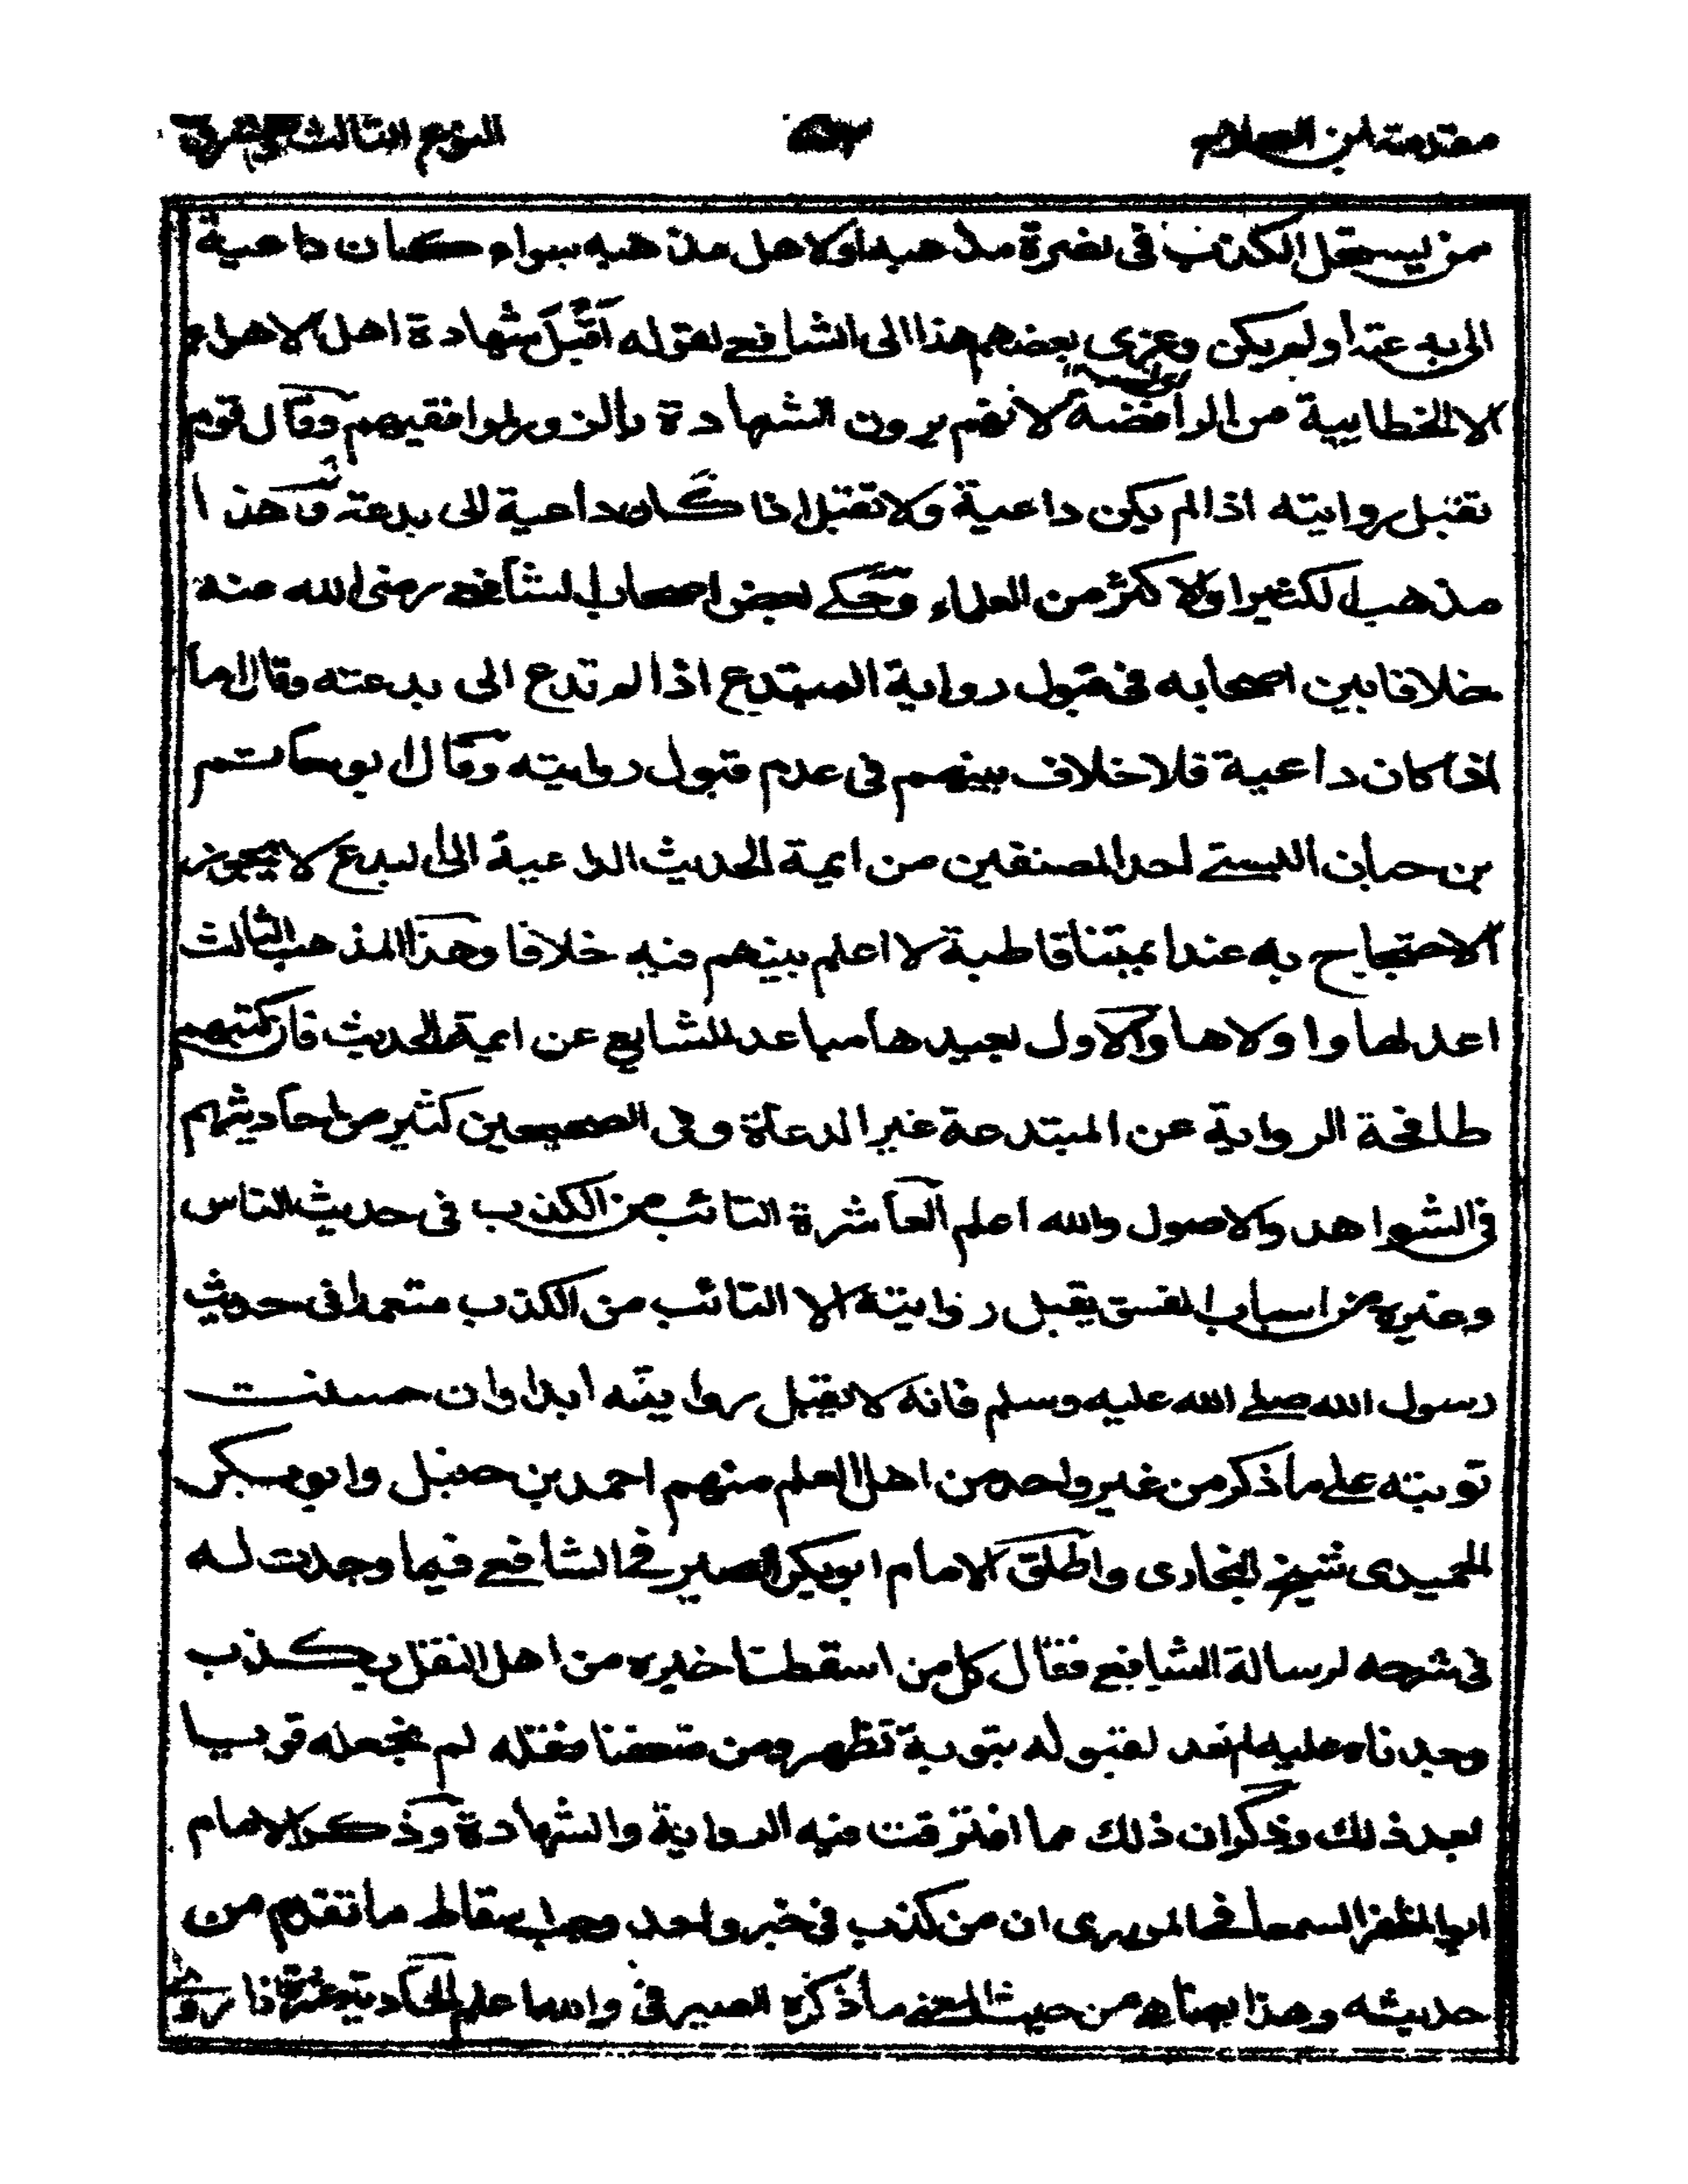 مقدمة ابن الصلاح النوع الثالث والعشرون
من يستحل الكذب فى نصرة مذهبه او لاهل مذهبه سواء كان داعية
الى بدعته او لم يكن وعزى بعضهم هذا الى الشافعى لقوله اقبل شهادة اهل الاهواء
الا الخطابية من الرافضة لانهم يرون الشهادة بالزور لموافقيهم وقال قوم
تقبل روايته اذا لم يكن داعية ولا تقبل اذا كان داعية الى بدعته وهذا
مذهب الكثير او الاكثر من العلماء وحكى بعض اصحاب الشافعى رضى الله عنه
خلافا بين اصحابه فى قبول رواية المبتدع اذا لم تدع الى بدعته وقال اما
اذا كان داعية فلا خلاف بينهم فى عدم قبول روايته وقال ابو حاتم
بن حبان البستى احد المصنفين من ايمة الحديث الداعية الى البدع لا يجوز
الاحتجاج به عند ايمتنا قاطبة لا اعلم بينهم فيه خلافا وهذا المذهب الثالث
اعدلها واولاها والاول بعيد ها مباعد للشايع عن ايمة الحديث فان كتبهم
طافحة الرواية عن المبتدعة غير الدعاة وفى الصحيحين كثير من احاديثهم
فى الشواهد والاصول والله اعلم العاشرة التائب من الكذب فى حديث الناس
وغيره من اسباب الفسق يقبل روايته الا التائب من الكذب متعمدا فى حديث
رسول الله صلى الله عليه وسلم فانه لا تقبل روايته ابدا وان حسنت
توبته على ما ذكر من غير واحد من اهل العلم منهم احمد بن حنبل وابو بكر
الحميدى شيخ البخارى واطلق الامام ابو بكر الصيرفى الشافعى فيما وجدت له
فى شرحه لرسالة الشافعى فقال كل من اسقطنا خبره من اهل النقل بكذب
وجدناه عليه لم نعد لقبوله بتوبة تظهر ومن ضعفنا نقله لم نجعله قويا
بعد ذلك وذكر ان ذلك مما افترقت فيه الرواية والشهادة وذكر الامام
ابو المظفر السمعانى المروزى ان من كذب فى خبر واحد وجب اسقاط ما تقدم من
حديثه وهذا يضاهى من حيث المعنى ما ذكره الصيرفى والله اعلم الحادية عشرة اذا روى